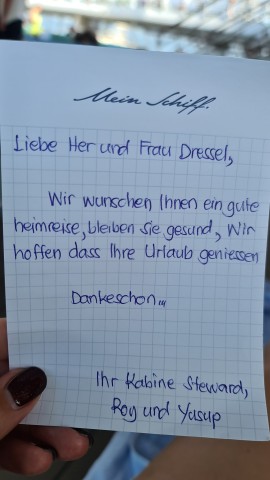 Mein Schiff.
Liebe Her und Frau Dressel,
Wir wunschen Ihnen ein gute
heimreise, bleiben Sie gesund, Wir
hoffen dass Ihre Urlaub geniessen
Dankeschon...
Ihr Kabine Steward,
Roy und Yusup